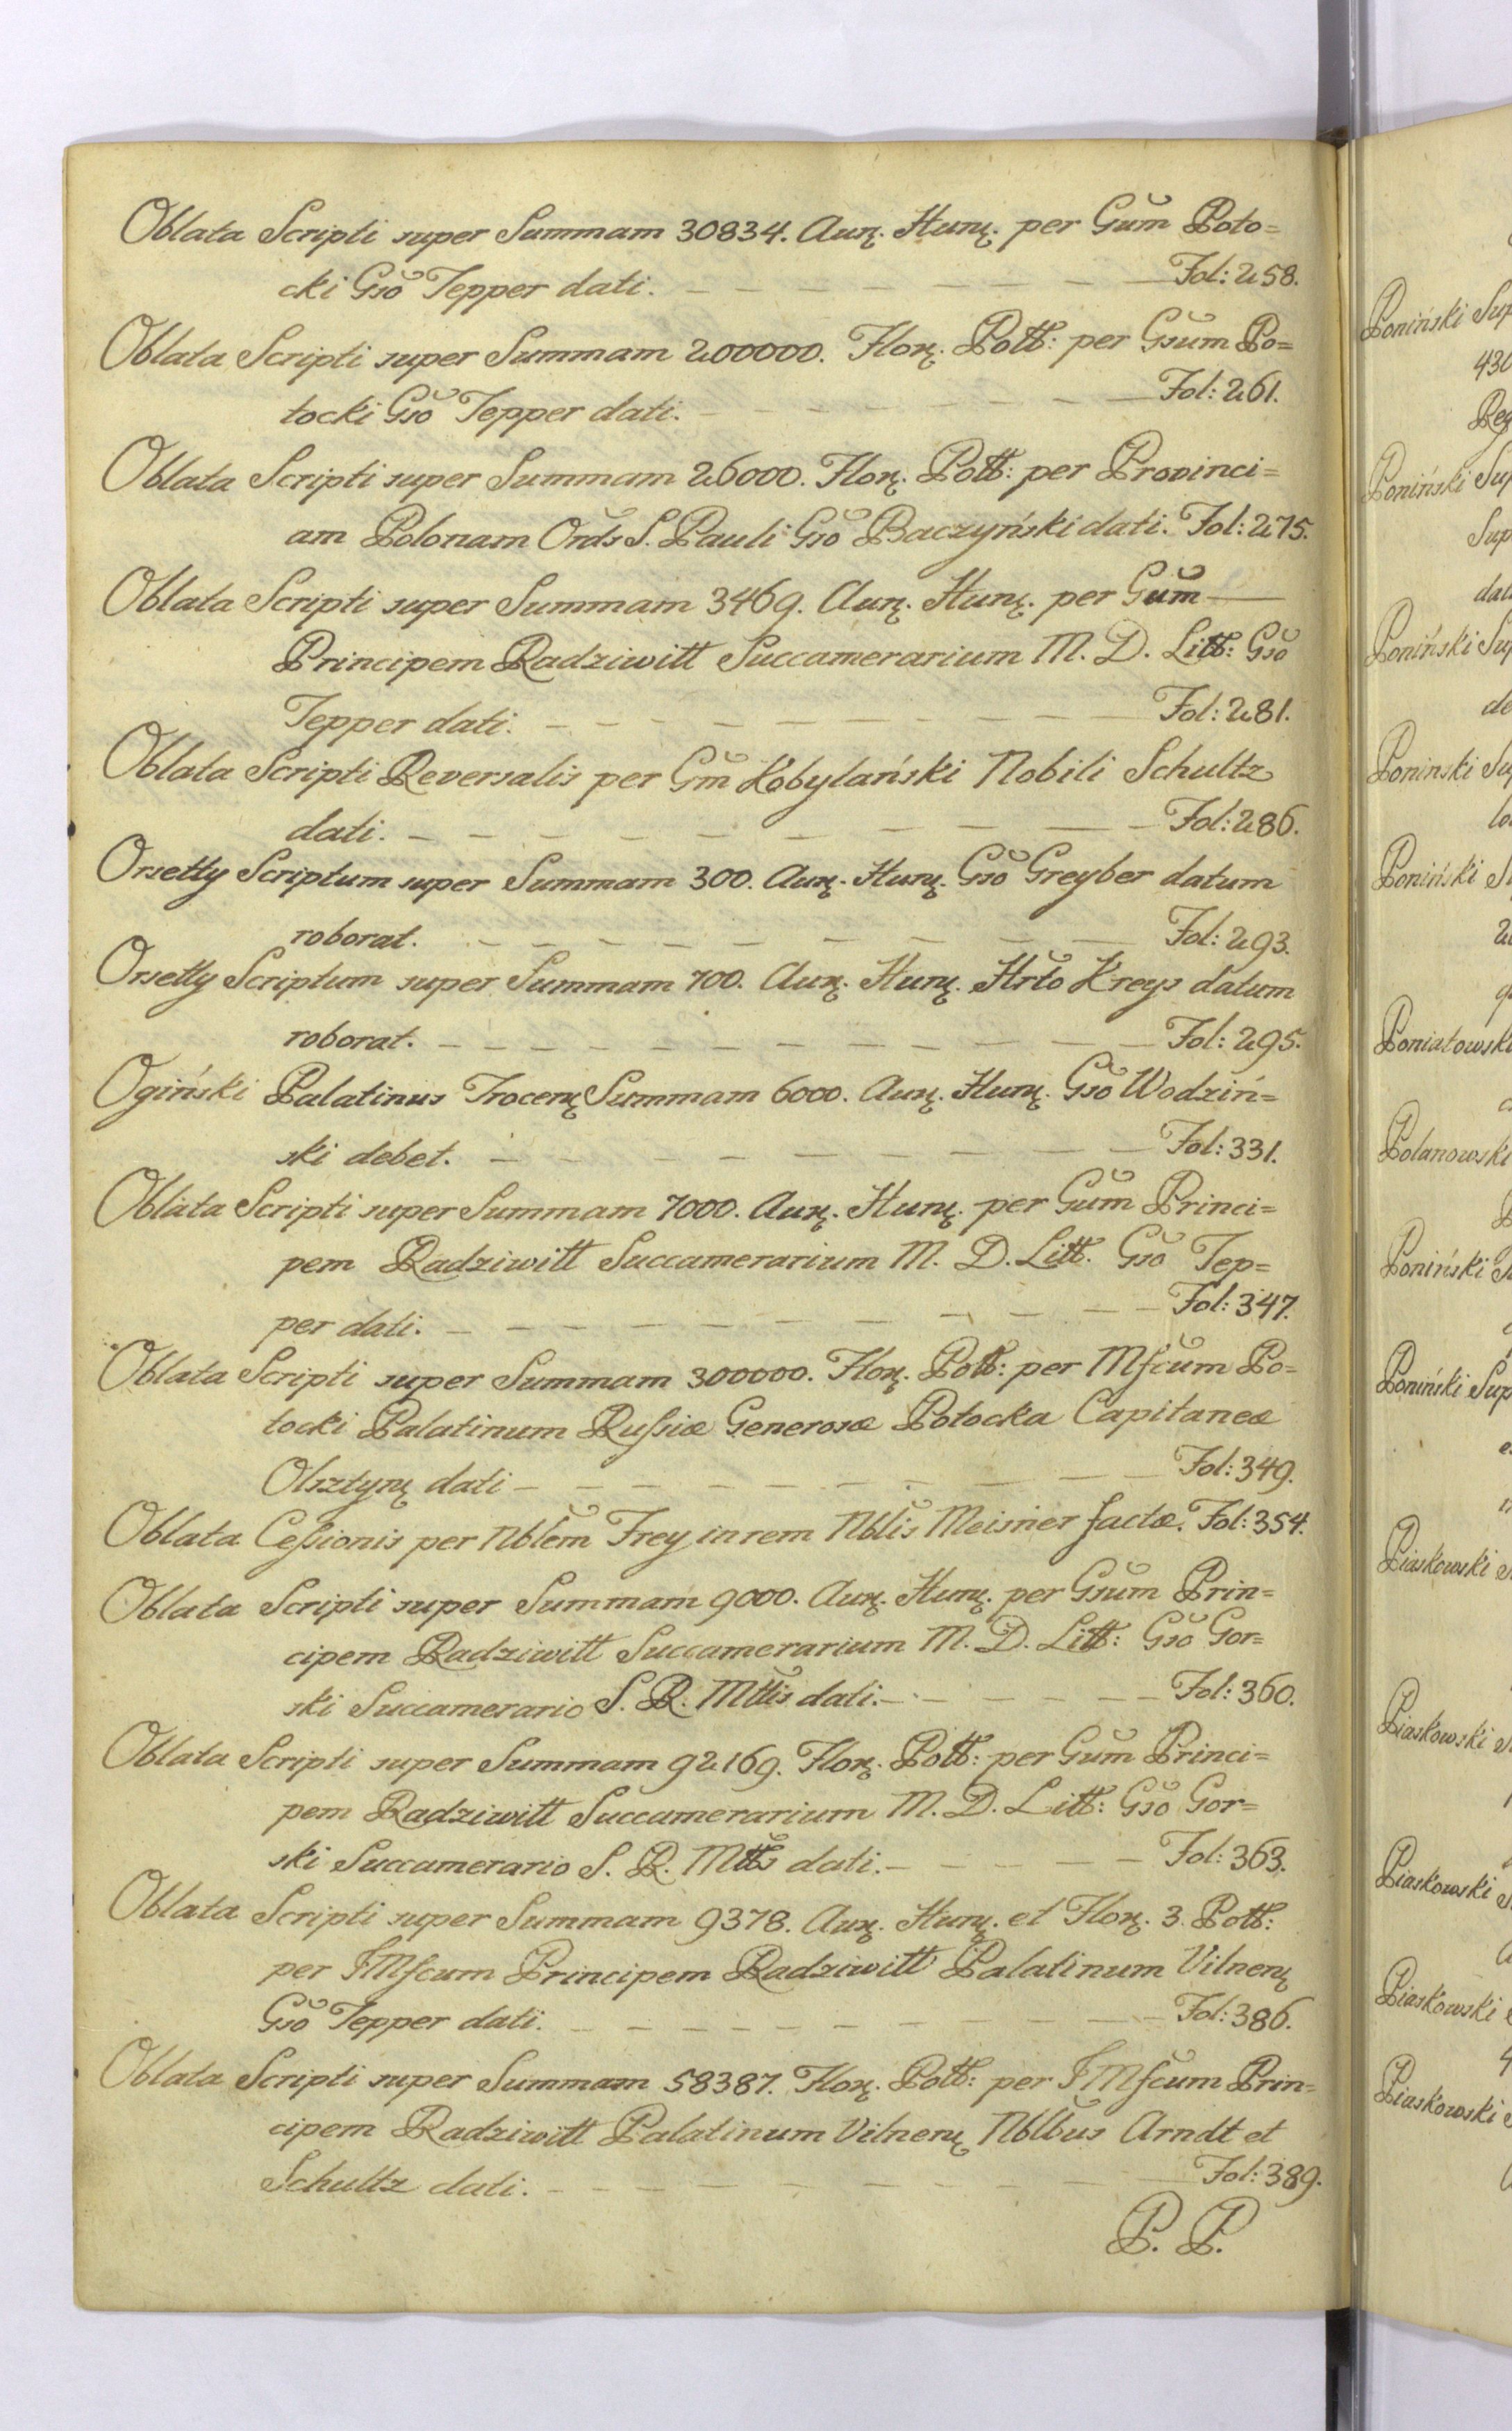 Oblata Scripti super Summam 30834. Aur. Hun. per Gūm Poto=
cki Gsō Tepper dati. — — — — — Fol: 258.
Oblata Scripti super Summam 200000. Flor. Poll: per Gsūm Po=
tocki Gsō Tepper dati. — — — — — Fol: 261.
Oblata Scripti super Summam 26000. Flor. Poll: per Provinci=
am Polonam Ords S. Pauli Gsō Baczyński dati. Fol: 275.
Oblata Scripti super Summam 3469. Aur. Hun. per Gūm —
Principem Radziwill Succamerarium M. D. Litt: Gsō
Tepper dati. — — — — — Fol: 281.
Oblata Scripti Reversalis per Gm̄ Kobylański Nobili Schultz
dati. — — — — — Fol: 286.
Orsetty Scriptum super Summam 300. Aur. Hun. Gsō Greyber datum
roborat. — — — — — Fol: 293.
Orsetty Scriptum super Summam 700. Aur. Hun. Hrtō Kreys datum
roborat. — — — — — Fol: 295.
Ogiński Palatinus Trocen Summam 6000. Aur. Hun. Gsō Wodziń=
ski debet. — — — — — Fol: 331.
Oblata Scripti super Summam 7000. Aur. Hun. per Gūm Princi=
pem Radziwill Succamerarium M. D. Litt. Gsō Tep=
per dati. — — — — — Fol: 347.
Oblata Scripti super Summam 300000. Flor. Poll: per Mfcūm Po=
tocki Palatinum Rußiæ Generosæ Potocka Capitaneæ
Olsztyn dati — — — — — Fol: 349.
Oblata Ceßionis per Nblēm Frey in rem Nblīs Meisner factæ. Fol: 354.
Oblata Scripti super Summam 9000. Aur. Hun. per Gsūm Prin=
cipem Radziwill Succamerarium M. D. Litt: Gsō Gor=
ski Succamerario S. R. Mttis dati. — — — Fol: 360.
Oblata Scripti super Summam 92169. Flor. Poll: per Gūm Princi=
pem Radziwill Succamerarium M. D. Litt: Gsō Gor=
ski Succamerario S. R. Mtts dati. — — — Fol: 363.
Oblata Scripti super Summam 9378. Aur. Hun. et Flor. 3. Poll:
per IMfcum Principem Radziwill Palatinum Vilnen
Gsō Tepper dati. — — — — — Fol: 386.
Oblata Scripti super Summam 58387. Flor. Poll: per IMfcūm Prin=
cipem Radziwill Palatinum Vilnen Nblbūs Arndt et
Schultz dati. — — — — — Fol: 389.
P. P.
Poniński Sup
430
Reg
Poniński Sup
Sup
dat
Poniński Sup
de
Poninski Su
Poniński S
Poniatowski
Polanowski
Poniński
Poniński Sup
Piaskowski
Piaskowski
Piaskowski
Piaskowski
Piaskowski